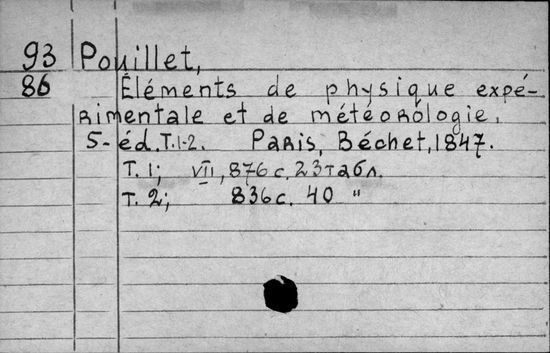 93 Pouillet,
86 Éléments de physique expé-
rimentale et de météorologie.
5-éd. T.1-2. Paris, Béchet, 1847.
T. 1; VII, 876 с. 23 табл.
T. 2; 836 с. 40 "